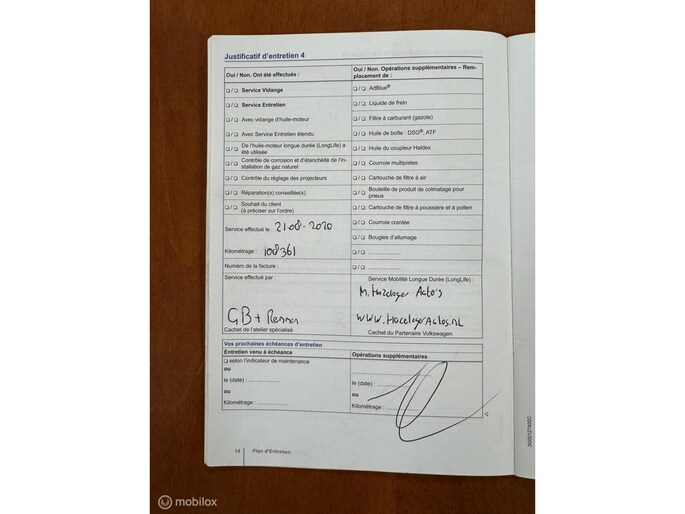 Justificatif d'entretien 4
Oui / Non. Ont été effectués :
Oui / Non. Opérations supplémentaires – Rem-
placement de :
❏ / ❏ Service Vidange
❏ / ❏ AdBlue®
❏ / ❏ Service Entretien
❏ / ❏ Liquide de frein
❏ / ❏ Avec vidange d'huile-moteur
❏ / ❏ Filtre à carburant (gazole)
❏ / ❏ Avec Service Entretien étendu
❏ / ❏ Huile de boîte : DSG®, ATF
❏ / ❏ De l'huile-moteur longue durée (LongLife) a
été utilisée
❏ / ❏ Huile du coupleur Haldex
❏ / ❏ Contrôle de corrosion et d'étanchéité de l'in-
stallation de gaz naturel
❏ / ❏ Courroie multipistes
❏ / ❏ Contrôle du réglage des projecteurs
❏ / ❏ Cartouche de filtre à air
❏ / ❏ Réparation(s) conseillée(s)
❏ / ❏ Bouteille de produit de colmatage pour
pneus
❏ / ❏ Souhait du client
(à préciser sur l'ordre)
❏ / ❏ Cartouche de filtre à poussière et à pollen
Service effectué le : 21-08-2020
❏ / ❏ Courroie crantée
❏ / ❏ Bougies d'allumage
Kilométrage : 108361
❏ / ❏ ....................
Numéro de la facture :
❏ / ❏ ....................
Service effectué par :
Service Mobilité Longue Durée (LongLife) :
M. Hazeleger Auto's
GB +
www.HazelegerAutos.nl
Cachet de l'atelier spécialisé
Cachet du Partenaire Volkswagen
Vos prochaines échéances d'entretien
Entretien venu à échéance
Opérations supplémentaires
❏ selon l'indicateur de maintenance
ou
le (date) : ....................
le (date) : ....................
ou
ou
Kilométrage : ....................
Kilométrage : ....................
14
Plan d'Entretien
3G0012740SC
mobilox